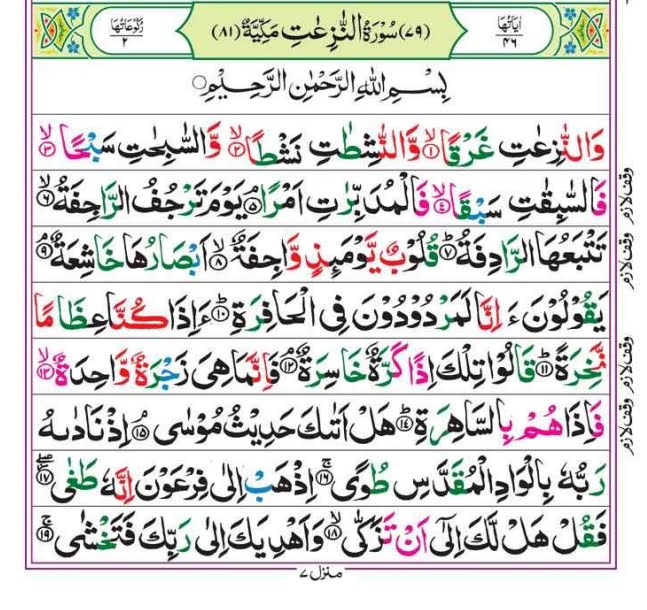 اٰیَاتُهَا ٤٦ (٧٩) سُوْرَةُ النّٰزِعٰتِ مَكِّیَّةٌ (٨١) رُكُوْعَاتُهَا ٢
بِسْمِ اللّٰهِ الرَّحْمٰنِ الرَّحِیْمِ
وَالنّٰزِعٰتِ غَرْقًا ۙ﴿١﴾ وَّالنّٰشِطٰتِ نَشْطًا ۙ﴿٢﴾ وَّالسّٰبِحٰتِ سَبْحًا ۙ﴿٣﴾
فَالسّٰبِقٰتِ سَبْقًا ۙ﴿٤﴾ فَالْمُدَبِّرٰتِ اَمْرًا ۘ﴿٥﴾ یَوْمَ تَرْجُفُ الرَّاجِفَةُ ۙ﴿٦﴾ وقف لازم
تَتْبَعُهَا الرَّادِفَةُ ؕ﴿٧﴾ قُلُوْبٌ یَّوْمَىِٕذٍ وَّاجِفَةٌ ۙ﴿٨﴾ اَبْصَارُهَا خَاشِعَةٌ ۘ﴿٩﴾ وقف لازم
یَقُوْلُوْنَ ءَاِنَّا لَمَرْدُوْدُوْنَ فِی الْحَافِرَةِ ؕ﴿١٠﴾ ءَاِذَا كُنَّا عِظَامًا
نَّخِرَةً ؕ﴿١١﴾ قَالُوْا تِلْكَ اِذًا كَرَّةٌ خَاسِرَةٌ ۘ﴿١٢﴾ فَاِنَّمَا هِیَ زَجْرَةٌ وَّاحِدَةٌ ۙ﴿١٣﴾ وقف لازم
فَاِذَا هُمْ بِالسَّاهِرَةِ ؕ﴿١٤﴾ هَلْ اَتٰىكَ حَدِیْثُ مُوْسٰی ۘ﴿١٥﴾ اِذْ نَادٰىهُ وقف لازم
رَبُّهٗ بِالْوَادِ الْمُقَدَّسِ طُوًی ۚ﴿١٦﴾ اِذْهَبْ اِلٰی فِرْعَوْنَ اِنَّهٗ طَغٰی ۖ﴿١٧﴾
فَقُلْ هَلْ لَّكَ اِلٰۤی اَنْ تَزَكّٰی ۙ﴿١٨﴾ وَاَهْدِیَكَ اِلٰی رَبِّكَ فَتَخْشٰی ۚ﴿١٩﴾
منزل ٧